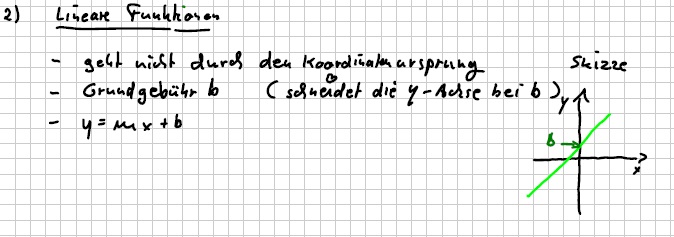 2) Lineare Funktionen
- geht nicht durch den Koordinatenursprung
Skizze
- Grundgebühr b (schneidet die y-Achse bei b)
- y = mx + b
y
b
x